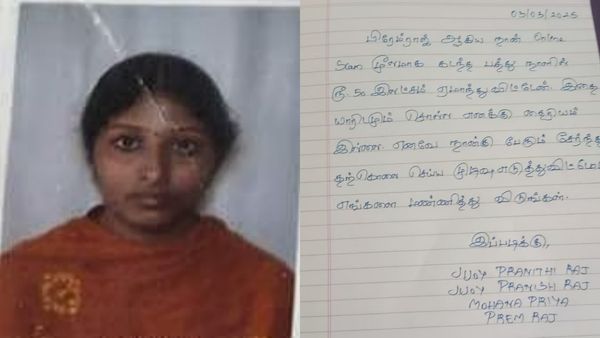 03/03/2025
பிரேம்ராஜ் ஆகிய நான் Online
Scam மூலமாக கடந்த பத்து நாளில்
ரூ. 50 இலட்சம் ஏமாந்து விட்டேன். இதை
யாரிடமும் சொல்ல எனக்கு தைரியம்
இல்லை. எனவே நாங்கள் பேரும் சேர்ந்து
தற்கொலை செய்ய முடிவு எடுத்துவிட்டோம்
எங்களை மன்னித்து விடுங்கள்.
இப்படிக்கு,
JUDY PRANITHI RAJ
JUDY PRANISH RAJ
MOHANA PRIYA
PREM RAJ